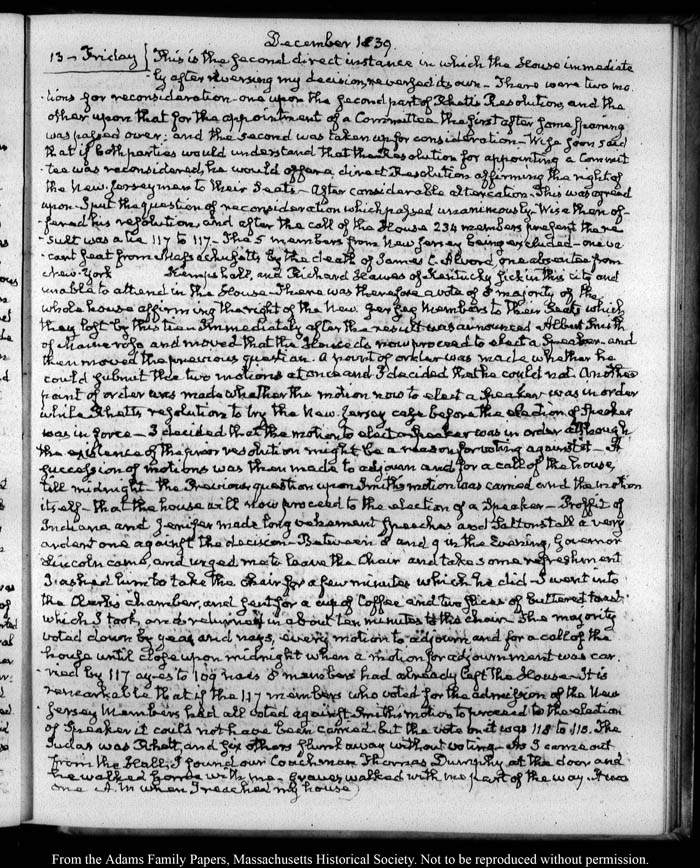 December 1839.
13 - Friday { This is the second direct instance in which the House immediate
ly after reversing my decision, reversed its own - There were two mo-
tions for reconsideration - one upon the second part of Rhett's Resolution, and the
other upon that for the appointment of a Committee. The first after some sparring
was passed over; and the second was taken up for consideration - Wise soon said
that if both parties would understand that the Resolution for appointing a Commit
tee was reconsidered, he would offer a direct Resolution affirming the right of
the New Jersey men to their Seats - After considerable altercation, this was agreed
upon. I put the question of reconsideration which passed unanimously - Wise then of-
fered his resolution, and after the call of the House 234 members present the re-
sult was a tie 117 to 117 - The 5 members from New Jersey being excluded - one va-
cant seat from Massachusetts by the death of James C. Alvord, one absentee from
New York Kemps hall, and Richard Hawes of Kentucky sick in this city and
unable to attend in the House - There was therefore a vote of majority of the
whole house affirming the right of the New Jersey Members to their Seats which
they lost by this tie. Immediately after the result was announced - Albert Smith
of Maine rose and moved that the House do now proceed to elect a Speaker - and
then moved the previous question. A point of order was made whether he
could submit the two motions at once and I decided that he could not. Another
point of order was made whether the motion now to elect a Speaker was in order
while Rhett's resolution to try the New Jersey case before the election of Speaker
was in force - I decided that the motion to elect a Speaker was in order although
the existence of the prior resolution might be a reason for voting against it - A
succession of motions was then made to adjourn and for a call of the house,
till midnight - the Previous question upon Smith's motion was carried and the motion
itself - that the house will now proceed to the election of a Speaker - Proffit of
Indiana and Jenifer made long vehement speeches and Saltonstall a very
ardent one against the decision - Between 8 and 9 in the Evening, Governor
Lincoln came, and urged me to leave the Chair and take some refreshment
I asked him to take the chair for a few minutes which he did - I went into
the Clerks chamber, and sent for a cup of Coffee and two slices of buttered toast
which I took, and returned in about ten minutes to the chair - The majority
voted down by yeas and nays, every motion to adjourn, and for a call of the
house until close upon midnight when a motion for adjournment was car-
ried by 117 ayes to 109 noes 8 members had already left the House - It is
remarkable that if the 117 members who voted for the admission of the New
Jersey Members had all voted against Smith's motion to proceed to the election
of Speaker it could not have been carried. but the vote on it was 118 to 110. The
Judas was Rhett, and six others slunk away without voting - As I came out
from the Hall, I found our Coachman Thomas Dunphy at the door and
he walked home with me - Graves walked with me part of the way. It was
one A.M when I reached my house)
From the Adams Family Papers, Massachusetts Historical Society. Not to be reproduced without permission.